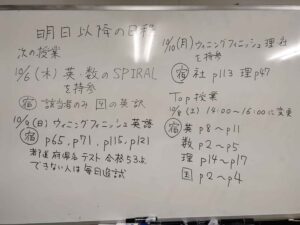 明日以降の日程
次の授業
10/6 (木) 英・数のSPIRAL
を持参
宿 該当者のみ 国の英訳
10/9 (日) ウィニングフィニッシュ 英語
宿 p65, p71, p115, p121
都道府県名テスト 合格53よ
できない人は毎日追試
10/10 (月) ウィニングフィニッシュ 理社
を持参
宿 社 p113 理 p47
Top 授業
10/8 (土) 14:00～16:00に変更
宿 英 p8～p11
数 p2～p5
理 p14～p17
国 p2～p4